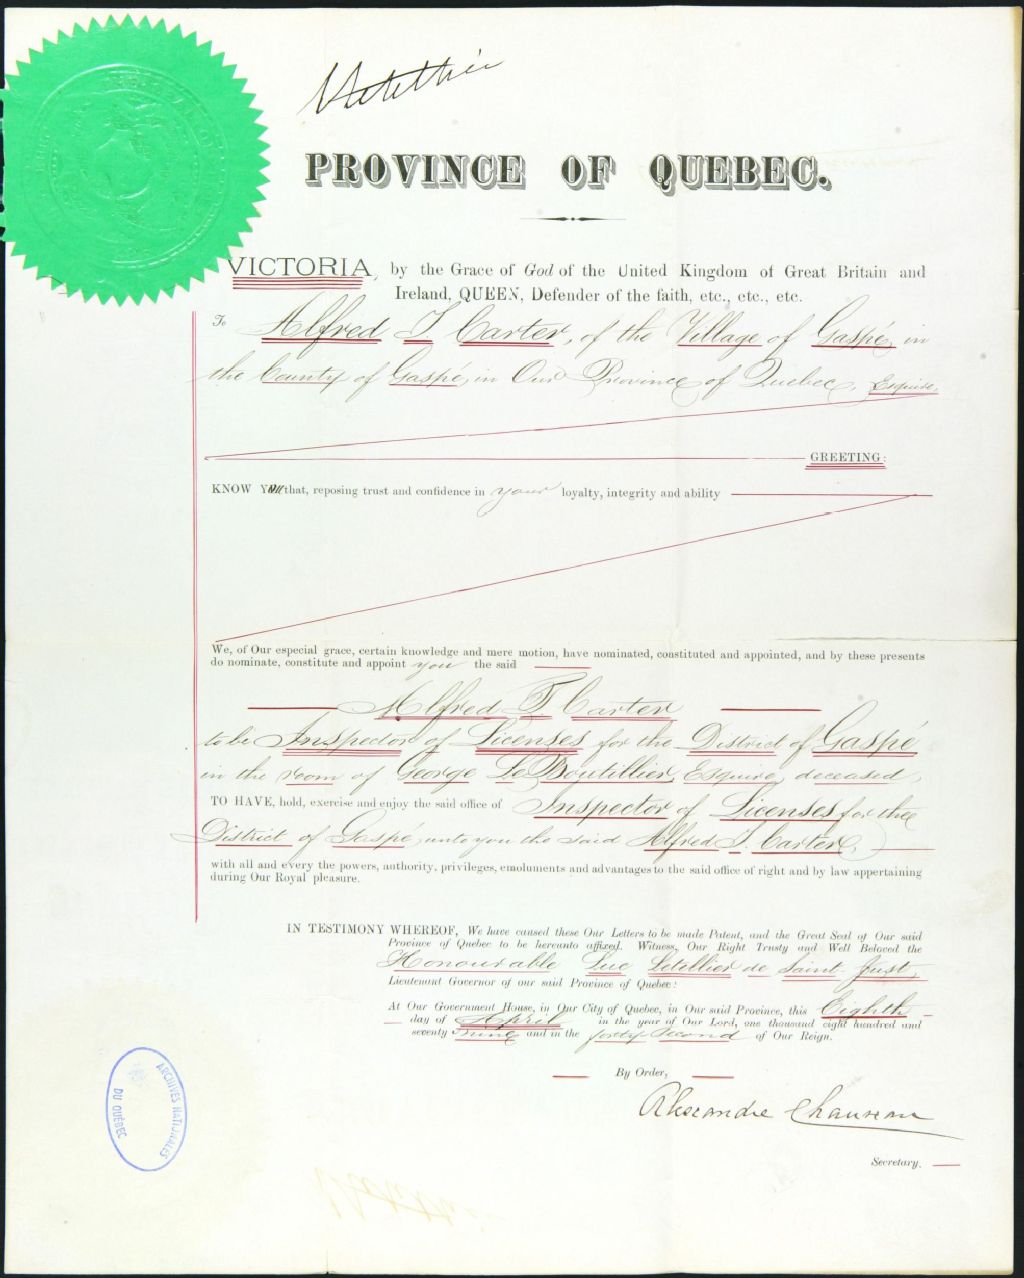 Letellier
PROVINCE OF QUEBEC.
VICTORIA, by the Grace of God of the United Kingdom of Great Britain and
Ireland, QUEEN, Defender of the faith, etc., etc., etc.
To Alfred T. Carter, of the Village of Gaspé, in
the County of Gaspé, in Our Province of Quebec, Esquire,
GREETING:
KNOW YOU that, reposing trust and confidence in your loyalty, integrity and ability
We, of Our especial grace, certain knowledge and mere motion, have nominated, constituted and appointed, and by these presents
do nominate, constitute and appoint you the said
Alfred T. Carter
to be Inspector of Licenses for the District of Gaspé
in the room of George Le Boutillier, Esquire, deceased,
TO HAVE, hold, exercise and enjoy the said office of Inspector of Licenses for the
District of Gaspé, unto you the said Alfred T. Carter,
with all and every the powers, authority, privileges, emoluments and advantages to the said office of right and by law appertaining
during Our Royal pleasure.
IN TESTIMONY WHEREOF, We have caused these Our Letters to be made Patent, and the Great Seal of Our said
Province of Quebec to be hereunto affixed. Witness, Our Right Trusty and Well Beloved the
Honourable Luc Letellier de Saint-Just,
Lieutenant Governor of our said Province of Quebec:
At Our Government House, in Our City of Quebec, in Our said Province, this Eighth
day of April in the year of Our Lord, one thousand eight hundred and
seventy nine and in the forty second of Our Reign.
By Order,
Alexandre Chauveau
Secretary.
ARCHIVES NATIONALES
DU QUÉBEC